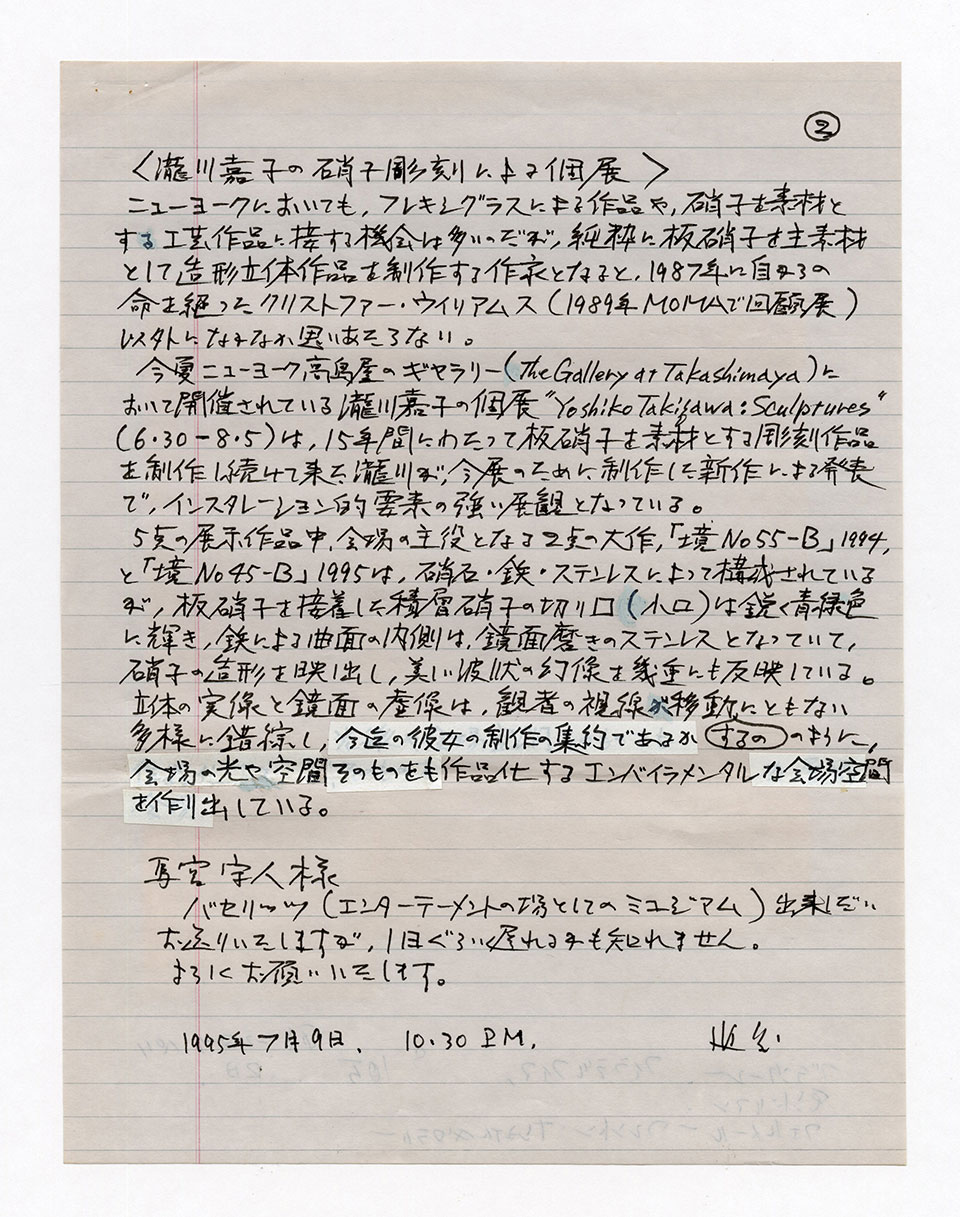 ②
〈瀧川嘉子の硝子彫刻による個展〉
ニューヨークにおいても,フレキシグラスによる作品や,硝子を素材と
する工芸作品に接する機会は多いのだが,純粋に板硝子を主素材
として造形立体作品を制作する作家となると,1987年に自からの
命を絶ったクリストファー・ウィリアムス(1989年MOMAで回顧展)
以外になかなか思いあたらない。
今夏ニューヨーク高島屋のギャラリー(The Gallery at Takashimaya)に
おいて開催されている瀧川嘉子の個展"Yoshiko Takigawa: Sculptures"
(6・30-8・5)は,15年間にわたって板硝子を素材とする彫刻作品
を制作し続けて来た瀧川が,今展のために制作した新作による発表
で,インスタレーション的要素の強い展観となっている。
5点の展示作品中,会場の主役となる2点の大作,「境No55-B」1994,
と「境No45-B」1995は,硝石・鉄・ステンレスによって構成されている
が,板硝子を接着した積層硝子の切り口(小口)は鋭く青緑色
に輝き,鉄による曲面の内側は,鏡面磨きのステンレスとなっていて,
硝子の造形を映し出し,美しい波状の幻像を幾重にも反映している。
立体の実像と鏡面の虚像は,観者の視線が移動にともない
多様に錯綜し,今迄の彼女の制作の集約であるか するの のように,
会場の光や空間そのものをも作品化するエンバイラメンタルな会場空間
を作り出している。
宮守人様
バセリッツ(エンターテーメントの場としてのミュジアム)出来しだい
お送りいたしますが,1日ぐらい遅れるかも知れません。
よろしくお願いいたします。
1995年7月9日, 10.30 P.M.